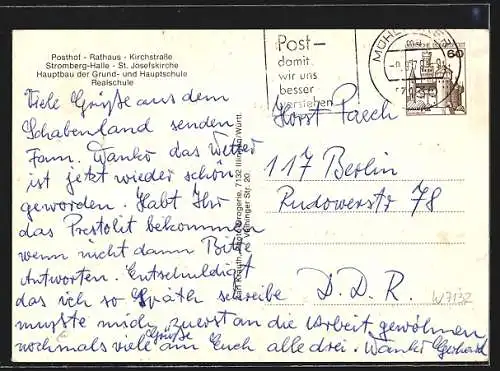 Posthof - Rathaus - Kirchstraße
Stromberg-Halle - St. Josefskirche
Hauptbau der Grund- und Hauptschule
Realschule
Post-
damit
wir uns
besser
verstehen
60
Viele Grüße aus dem
Schabenland senden
Fam. Wanko das Wetter
ist jetzt wieder schön
geworden. Habt Ihr
das Prestolit bekommen
wenn nicht dann Bitte
Antworten. Entschuldigt
das ich so Späth schreibe
mußte mich zuerst an die Arbeit gewöhnen
nochmals viele Grüße an Euch alle drei. Wanko Gerhard
Drogerie, 7132 Illingen/Württ.
Vaihinger Str. 20
Horst Paech
117 Berlin
Rudowerstr 78
D. D. R.
W7132